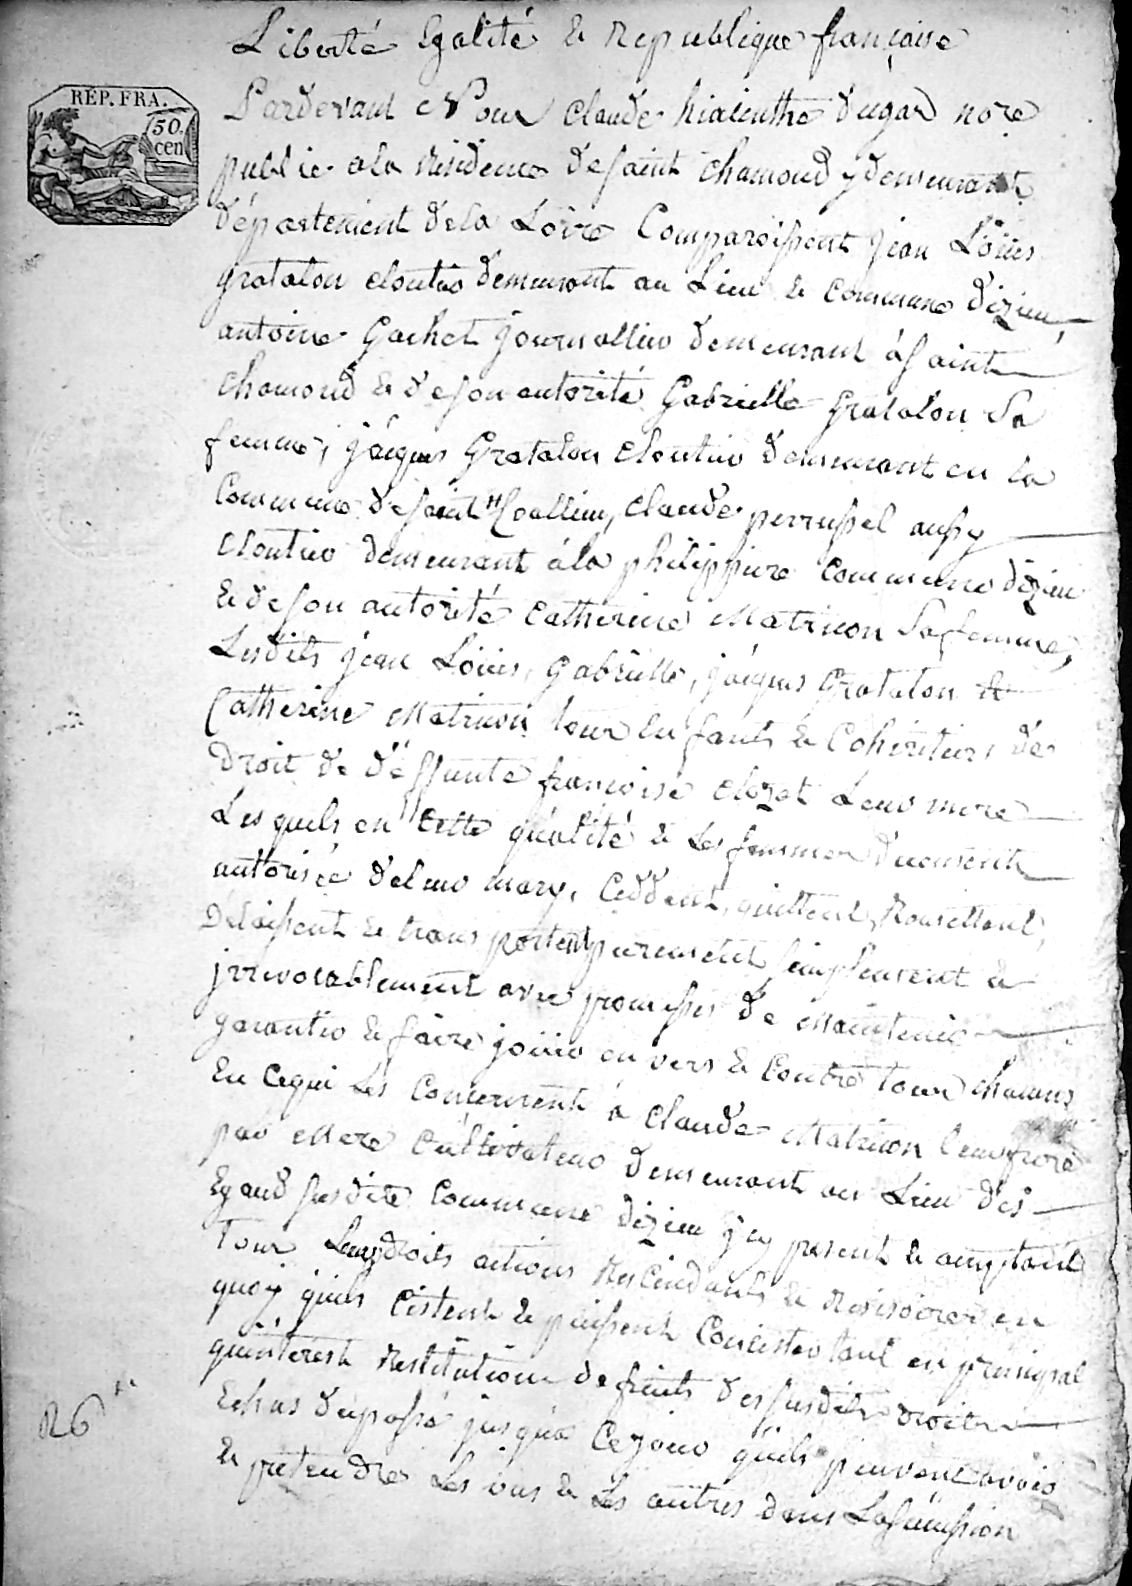 Liberté Egalité & Republique françoise
REP. FRA.
50.
cen
Pardevant Nous Claude hiacinthe dugas nore
public ala Residence de saint chamond y demeurant
département de la Loire Comparoissent jean Loüis
gratalon cloutier demeurant au Lieu & commune d'izieu,
antoine Gachet journallier demeurant à Saint
chamond & de son autorité Gabrielle gratalon Sa
femme, jâcques Gratalon cloutier demeurant en la
Commune de saint Coallieu, claude perrussel aussy
cloutier demeurant à la philippiere commune dizieu
& de son autorité catherine Matricon Sa femme,
Lesdits jean Loüis, Gabrielle, jâcques Gratalon &
Catherine Matricon tous enfants & Cohéritiers de
Droit de déffunte francoise clozet Leur mere
Lesquels en cette qualité & les femmes
autorisée de leur mary, Ceddent, quittent, Remettent,
Délaissent & transportent purement simplement &
jrrevocablement avec promesses de Maintenir
garantir & faire joüir en vers & Contre tous chacuns
En ce qui Les Concernent à Claude Matricon leur frere
par Mere Cultivateur demeurant au Lieu des
Egaud susdite Commune dizieu jcy present & acceptant
Tous Leurs droits actions Rescindants & Resisoires en
quoy quils Cistent & puissent Concister tant en principal
quinterest Restitution de fruits desfusdits droits
Echus dupassé jusqu'a Ce jour quils peuvent avoir
& prétendre Les uns & Les autres dans La sucession
R6